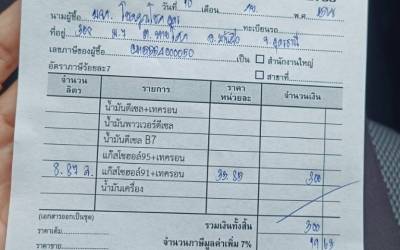 วันที่ 10 เดือน พ.ศ.
นามผู้ซื้อ
ทะเบียนรถ
ที่อยู่ 308 ม.4 ต. อ. จ. อุดรธานี
เลขภาษีของผู้ซื้อ เป็น สำนักงานใหญ่
อัตราภาษีร้อยละ7 สาขาที่
จำนวนลิตร รายการ ราคาหน่วยละ จำนวนเงิน
น้ำมันดีเซล+เทครอน
น้ำมันพาวเวอร์ดีเซล
น้ำมันดีเซล B7
แก๊สโซฮอล์95+เทครอน
8.37 ล. แก๊สโซฮอล์91+เทครอน 35 85 300
น้ำมันเครื่อง
(เอกสารออกเป็นชุด) รวมเงินทั้งสิ้น 300
ราคาเต็ม จำนวนภาษีมูลค่าเพิ่ม 7% 19 63
ราคาขาย